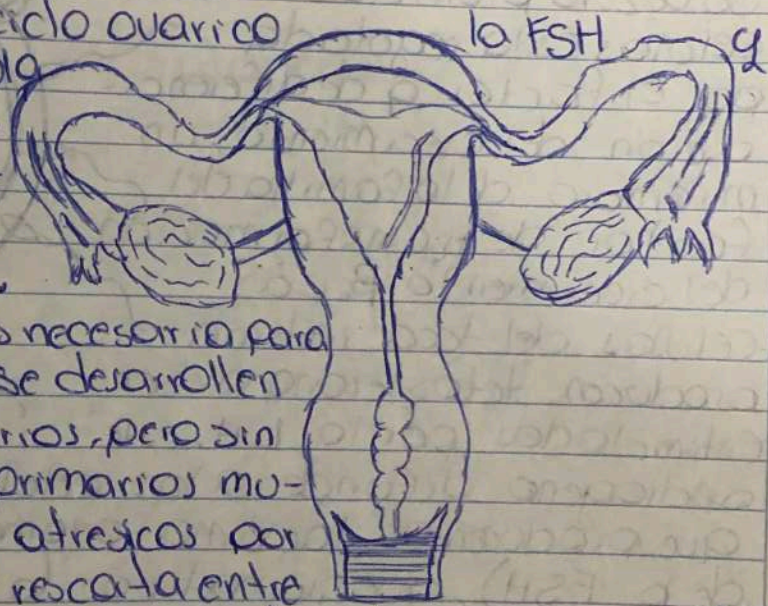 iclo ovarico la FSH y
ola
s necesaria para
se desarrollen
rios, pero sin
primarios mu-
atresicos por
rescata entre